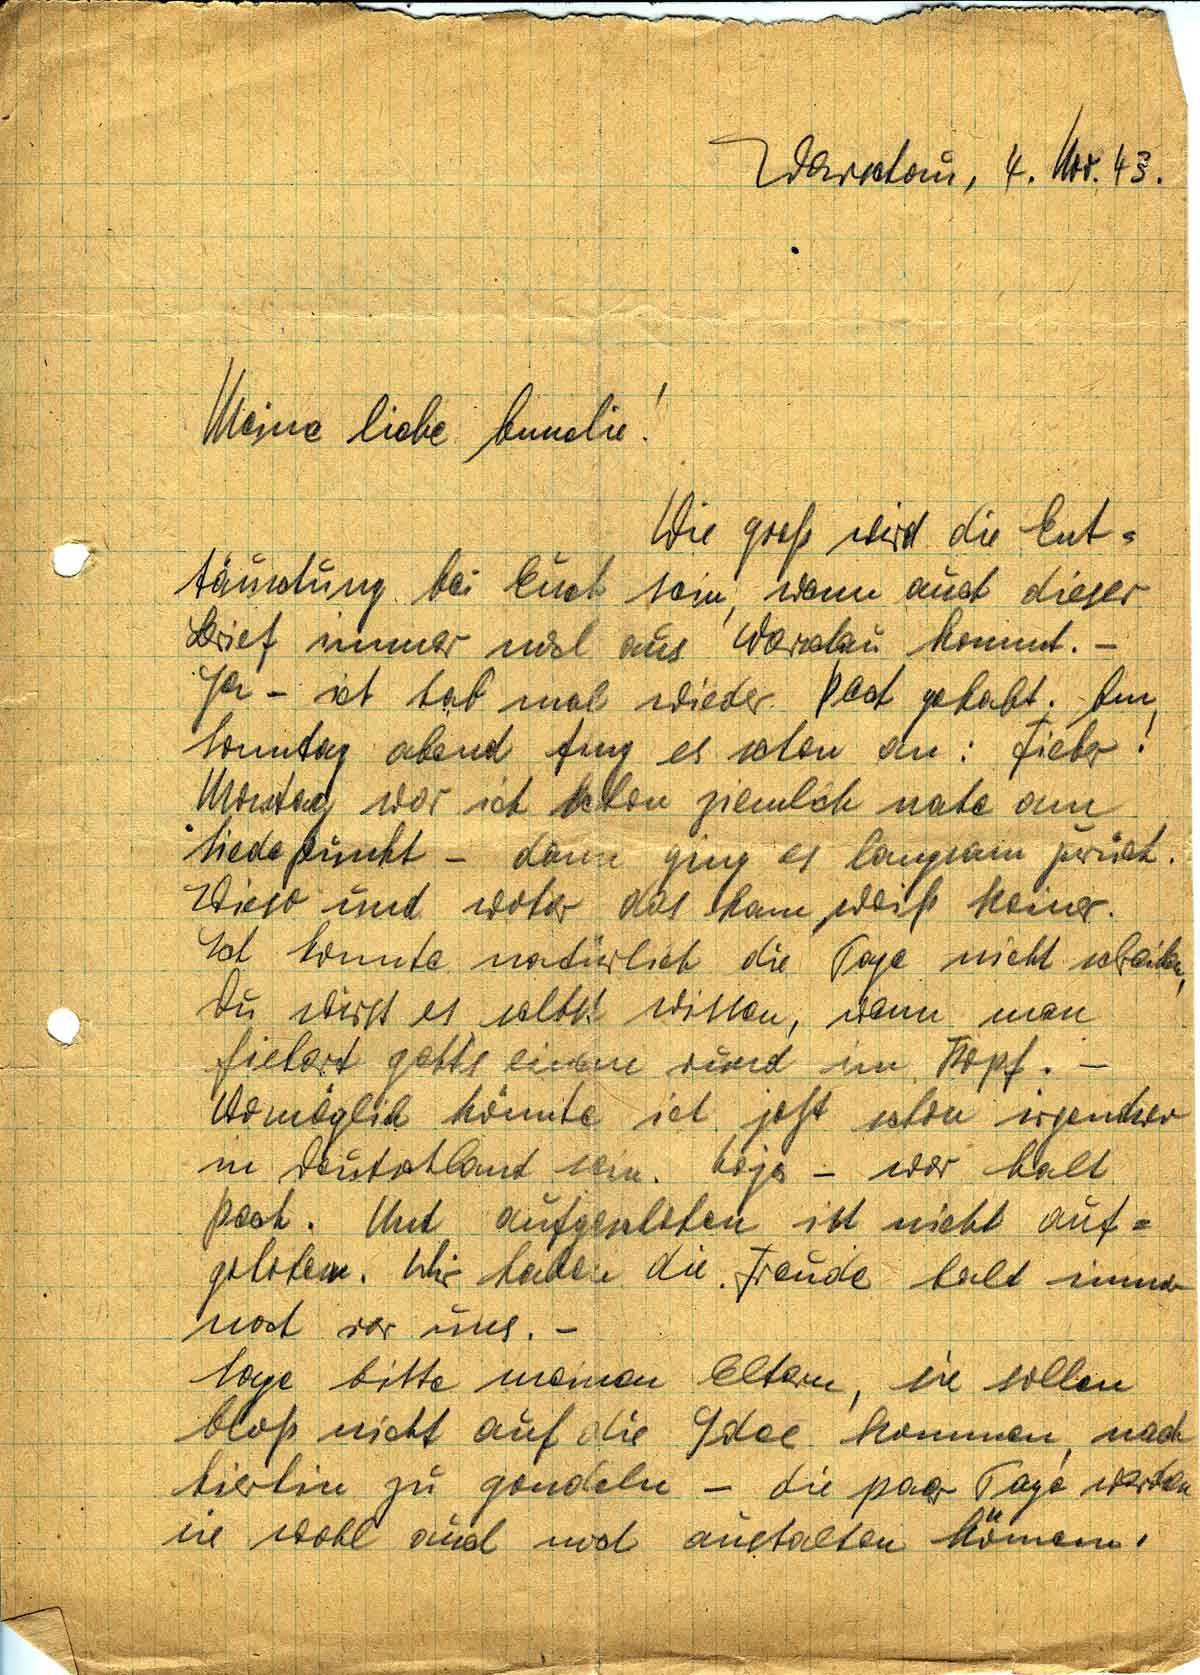 Warschau, 4. Nov. 43.
Meine liebe Annelie!
Wie groß wird die Ent-
täuschung bei Euch sein, wenn auch dieser
Brief immer noch aus Warschau kommt. -
Ja - ich hab mal wieder Pech gehabt. Am
Sonntag abend fing es schon an: Fieber!
Montag war ich schon ziemlich nahe am
Siedepunkt - dann ging es langsam zurück.
Wieso und woher das kam, weiß keiner.
Ich konnte natürlich die Tage nicht schreiben,
Du wirst es selbst wissen, wenn man
fiebert gehts einem rund im Kopf. -
Womöglich könnte ich jetzt schon irgendwo
in Deutschland sein. Naja - war halt
Pech. Und aufgeschoben ist nicht auf-
gehoben. Wir haben die Freude halt immer
noch vor uns. -
Sage bitte meinen Eltern, sie sollen
bloß nicht auf die Idee kommen, nach
hierhin zu gondeln - die paar Tage werden
sie wohl auch noch aushalten können.